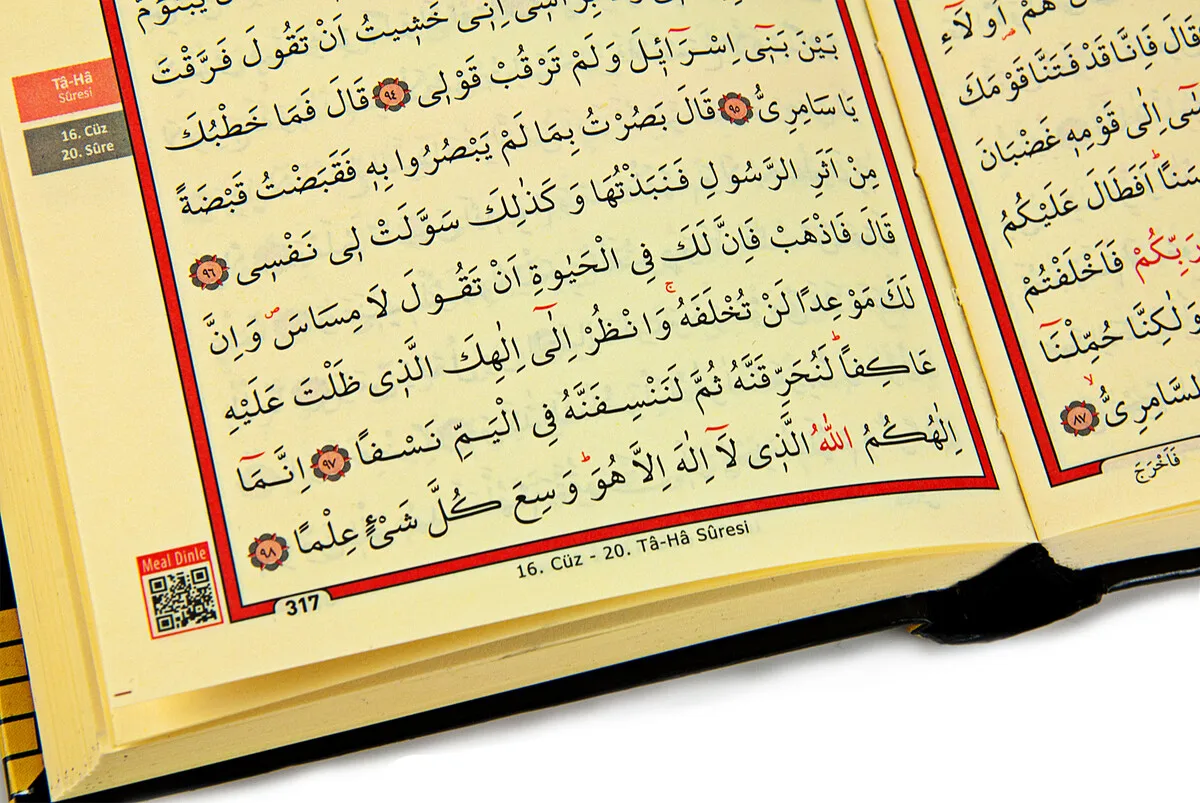 يَبْنَؤُمَّ
بِرَاْسٖى اِنّٖى خَشٖيتُ اَنْ تَقُولَ فَرَّقْتَ
بَيْنَ بَنٖٓى اِسْرَٓائٖلَ وَلَمْ تَرْقُبْ قَوْلٖى ﴿٩٤﴾ قَالَ فَمَا خَطْبُكَ
يَا سَامِرِىُّ ﴿٩٥﴾ قَالَ بَصُرْتُ بِمَا لَمْ يَبْصُرُوا بِهٖ فَقَبَضْتُ قَبْضَةً
مِنْ اَثَرِ الرَّسُولِ فَنَبَذْتُهَا وَكَذٰلِكَ سَوَّلَتْ لٖى نَفْسٖى ﴿٩٦﴾
قَالَ فَاذْهَبْ فَاِنَّ لَكَ فِى الْحَيٰوةِ اَنْ تَقُولَ لَا مِسَاسَ ۖ وَاِنَّ
لَكَ مَوْعِدًا لَنْ تُخْلَفَهُ ۚ وَانْظُرْ اِلٰٓى اِلٰهِكَ الَّذٖى ظَلْتَ عَلَيْهِ
عَاكِفاً ۜ لَنُحَرِّقَنَّهُ ثُمَّ لَنَنْسِفَنَّهُ فِى الْيَمِّ نَسْفاً ﴿٩٧﴾ اِنَّمَٓا
اِلٰهُكُمُ اللّٰهُ الَّذٖى لَٓا اِلٰهَ اِلَّا هُوَ ۜ وَسِعَ كُلَّ شَیْءٍ عِلْمًا ﴿٩٨﴾
Tâ-Hâ
Sûresi
16. Cüz
20. Sûre
Meal Dinle
317
16. Cüz - 20. Tâ-Hâ Sûresi
هُمْ اُو۬لَٓاءِ
قَالَ فَاِنَّا قَدْ فَتَنَّا قَوْمَكَ
اِلٰى قَوْمِهٖ غَضْبَانَ
اَفَطَالَ عَلَيْكُمُ
رَبِّكُمْ فَاَخْلَفْتُمْ
وَلٰكِنَّا حُمِّلْنَٓا
السَّامِرِىُّ ۙ ﴿٨٧﴾
فَاَخْرَجَ